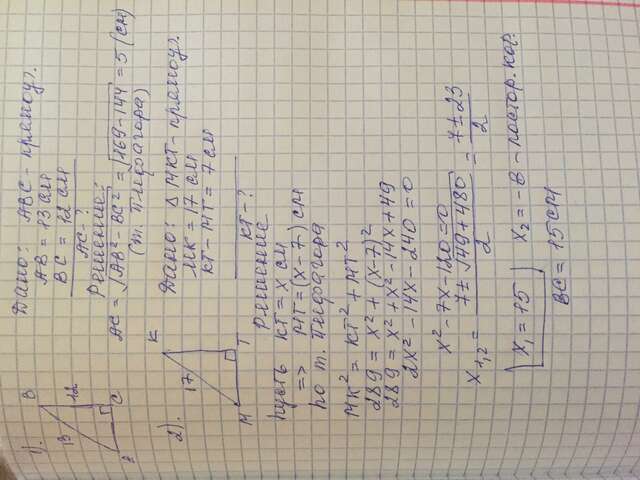 1).
B
13
12
A
C
Дано: ABC - прямоуг.
AB = 13 см
BC = 12 см
AC - ?
Решение:
AC = √AB² - BC² = √169 - 144 = 5 (см)
(т. Пифагора)
2).
K
17
M
T
Дано: Δ MKT - прямоуг.
MK = 17 см
KT - MT = 7 см
KT - ?
Решение
Пусть KT = x см
=> MT = (x - 7) см
по т. Пифагора
MK² = KT² + MT²
289 = x² + (x - 7)²
289 = x² + x² - 14x + 49
2x² - 14x - 240 = 0
x² - 7x - 120 = 0
x₁,₂ = 7 ± √49 + 480 / 2 = 7 ± 23 / 2
x₁ = 15 x₂ = - 8 - постор. кор.
BC = 15 см